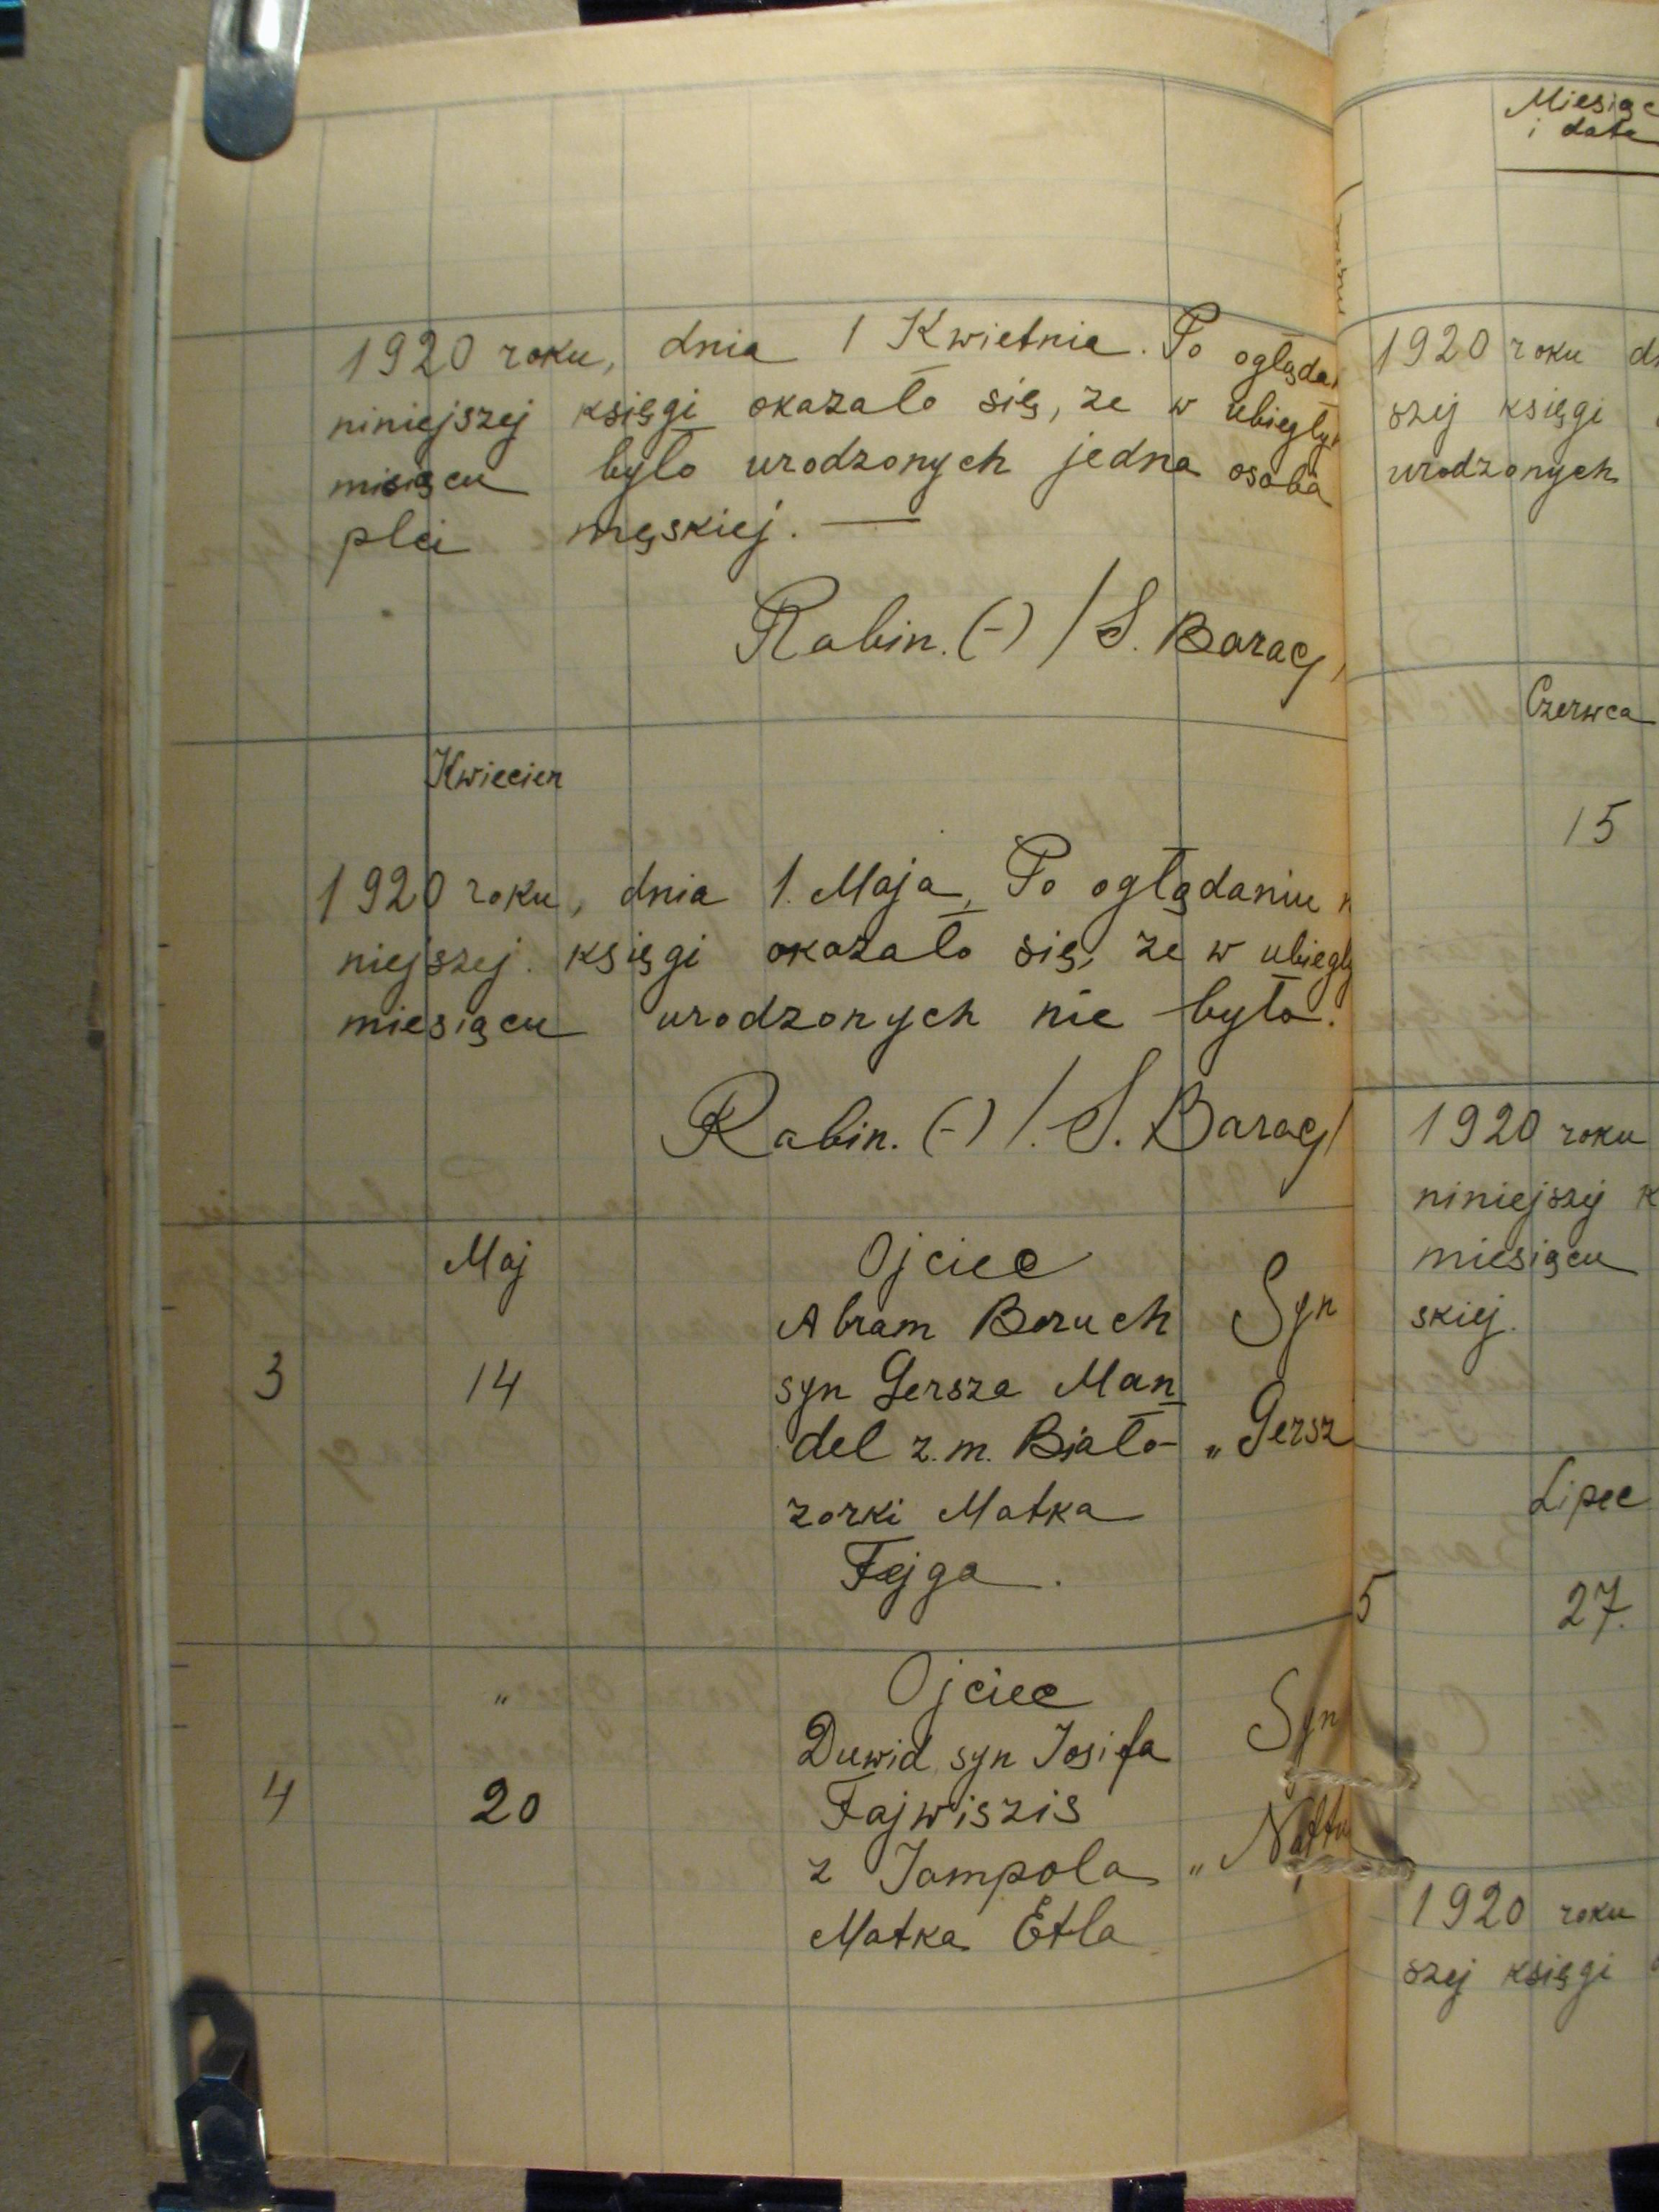 1920 roku, dnia 1 Kwietnia. Po ogląda
niniejszej księgi okazało się, ze w ubiegły
misiącu było urodzonych jedna osoba
płci męskiej. —
Rabin. (-) / S. Barag /
Kwiecien
1920 roku, dnia 1. Maja, Po oglądaniu n
niejszej. księgi okazało się, ze w ubiegły
miesiącu urodzonych nie było.
Rabin. (-) /. S. Barag/
Maj
Ojciec
Abram Boruch
Syn
3
14
syn Gersza Man
del z.m. Biało-
„ Gersz
zorki Matka
Fejga.
„
Ojciec
Duwid syn Josifa
Syn
4
20
Fajwiszis
z Jampola
„
Matka Etla
Miesiąc
i data
1920 roku d
szej księgi
urodzonych
Czerwca
15
1920 roku
niniejszej k
miesiącu
skiej.
Lipec
5
27.
1920 roku
szej księgi